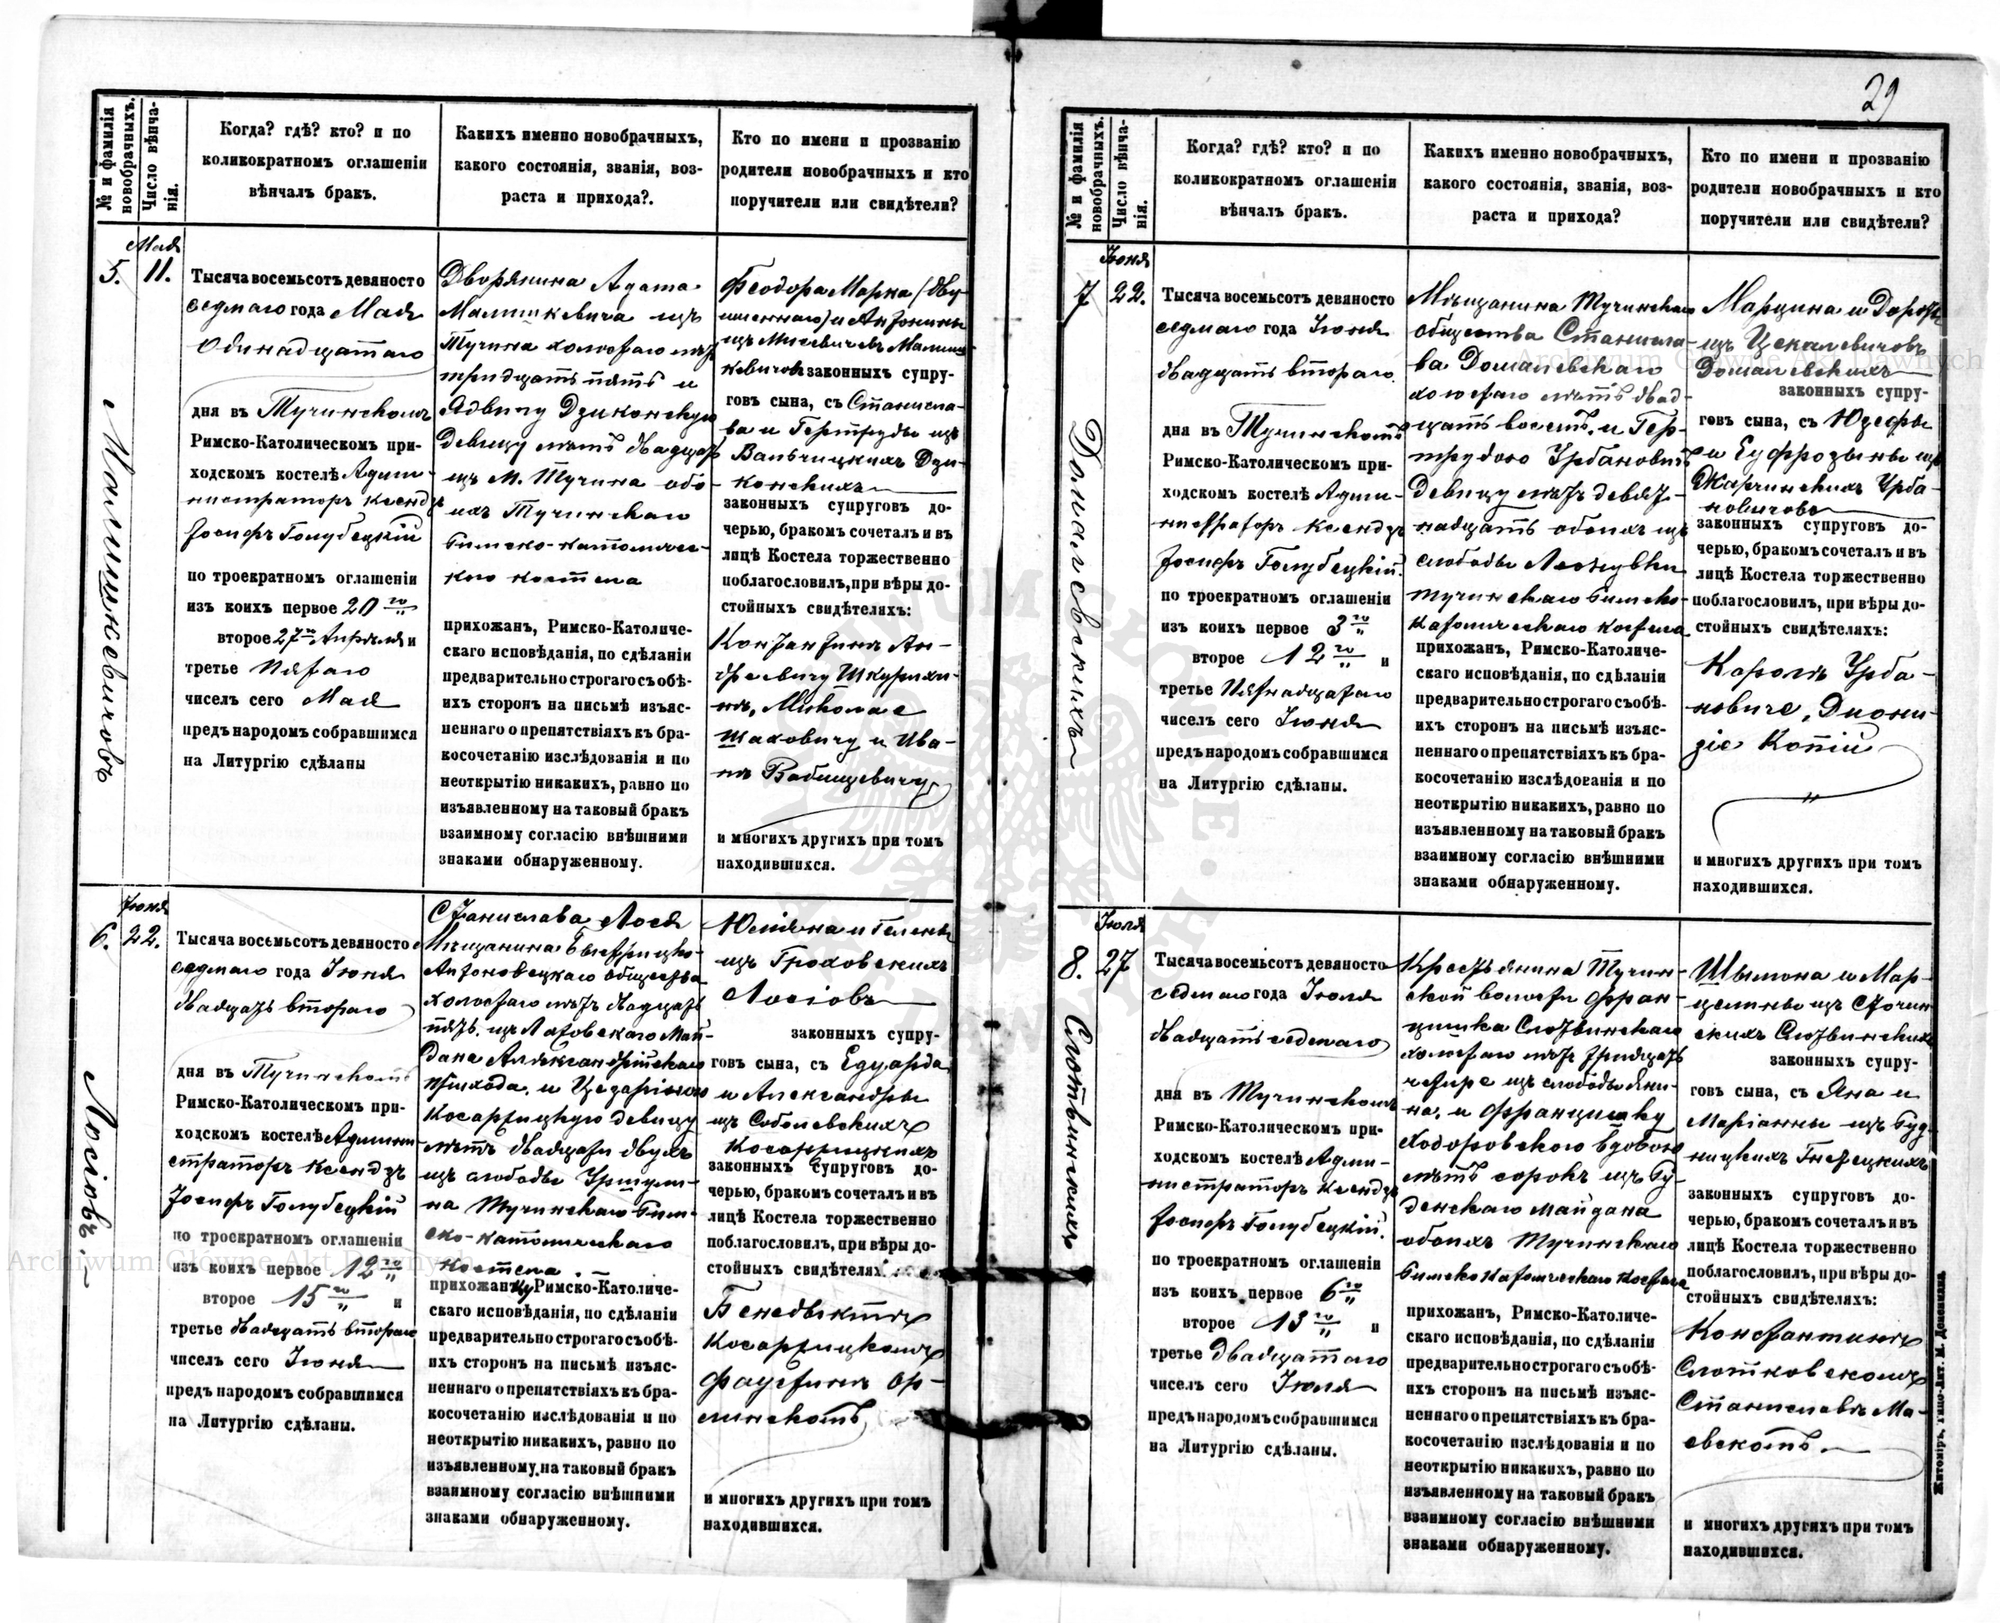 29
№ и фамилія новобрачныхъ.
Число вѣнчанія.
Когда? гдѣ? кто? и по
коликократномъ оглашеніи
вѣнчалъ бракъ.
Какихъ именно новобрачныхъ,
какого состоянія, званія, воз-
раста и прихода?.
Кто по имени и прозванію
родители новобрачныхъ и кто
поручители или свидѣтели?
5.
Малишкевичовъ
Мая
11.
Тысяча восемьсотъ девяносто
седмаго года Мая
Одинадцатаго
дня въ Тучинскомъ
Римско-Католическомъ при-
ходскомъ костелѣ Адми-
нистраторъ ксендзъ
Іосифъ Голубецкій
по троекратномъ оглашеніи
изъ коихъ первое 20 го
второе 27 го Апрѣля и
третье Пятаго
чиселъ сего Мая
предъ народомъ собравшимся
на Литургію сдѣланы
Дворянина Адама
Малишкевича изъ
Тучина холостаго лѣтъ
тридцать пять и
Ядвигу Дзиконскую
девицу лѣтъ двадцать
изъ М. Тучина обо-
ихъ Тучинскаго
Римско-католичес-
каго костела
прихожанъ, Римско-Католиче-
скаго исповѣданія, по сдѣланіи
предварительно строгаго съ обѣ-
ихъ сторонъ на письмѣ изъяс-
неннаго о препятствіяхъ къ бра-
косочетанію изслѣдованія и по
неоткрытію никакихъ, равно по
изъявленному на таковый бракъ
взаимному согласію внѣшними
знаками обнаруженному.
Феодора Марка (дву-
именнаго) и Антонины
изъ Мисевичевъ Малиш-
кевичовъ законныхъ супру-
говъ сына, съ Станисла-
ва и Гертруды изъ
Вальчицкихъ Дзи-
конскихъ
законныхъ супруговъ до-
черью, бракомъ сочеталъ и въ
лицѣ Костела торжественно
поблагословилъ, при вѣры до-
стойныхъ свидѣтеляхъ:
Констан­тинѣ Ан-
дреевичу Шкурихи-
нѣ, Миколаѣ
Шаховичу и Ива-
нѣ Вабищевичу
и многихъ другихъ при томъ
находившихся.
6.
Лосіовъ.
Іюня
22.
Тысяча восемьсотъ девяносто
седмаго года Іюня
двадцать втораго
дня въ Тучинскомъ
Римско-Католическомъ при-
ходскомъ костелѣ Админи-
страторъ ксендзъ
Іосифъ Голубецкій
по троекратномъ оглашеніи
изъ коихъ первое 12 го
второе 15 го и
третье двадцать втораго
чиселъ сего Іюня
предъ народомъ собравшимся
на Литургію сдѣланы.
Станислава Лося
Мѣщанина Быстрицко-
Антоновецкаго общества
холостаго лѣтъ двадцать
пять изъ Лаховскаго Май-
дана Александрійскаго
прихода и Цезарію
Косаржицкую девицу
лѣтъ двадцати двухъ
изъ слободы Уршули-
на Тучинскаго Рим-
ско-католическаго
костела.
прихожанку Римско-Католиче-
скаго исповѣданія, по сдѣланіи
предварительно строгаго съ обѣ-
ихъ сторонъ на письмѣ изъяс-
неннаго о препятствіяхъ къ бра-
косочетанію изслѣдованія и по
неоткрытію никакихъ, равно по
изъявленному на таковый бракъ
взаимному согласію внѣшними
знаками обнаруженному.
Юліяна и Гелены
изъ Гроховскихъ
Лосіовъ
законныхъ супру-
говъ сына, съ Едуарда
и Александры
изъ Соболевскихъ
Косаржицкихъ
законныхъ супруговъ до-
черью, бракомъ сочеталъ и въ
лицѣ Костела торжественно
поблагословилъ, при вѣры до-
стойныхъ свидѣтелях
Бенедыктѣ
Косаржицкомъ
Фаустинѣ Ор-
линскомъ
и многихъ другихъ при томъ
находившихся.
№ и фамилія новобрачныхъ.
Число вѣнчанія.
Когда? гдѣ? кто? и по
коликократномъ оглашеніи
вѣнчалъ бракъ.
Какихъ именно новобрачныхъ,
какого состоянія, званія, воз-
раста и прихода?
Кто по имени и прозванію
родители новобрачныхъ и кто
поручители или свидѣтели?
7
Домалевскихъ
Іюня
22.
Тысяча восемьсотъ девяносто
седмаго года Іюня
двадцать втораго
дня въ Тучинскомъ
Римско-Католическомъ при-
ходскомъ костелѣ Адми-
нистраторъ ксендзъ
Іосифъ Голубецкій.
по троекратномъ оглашеніи
изъ коихъ первое 3 го
второе 12 го и
третье Пятнадцатаго
чиселъ сего Іюня
предъ народомъ собравшимся
на Литургію сдѣланы.
Мѣщанина Тучинскаго
общества Станисла-
ва Домалевскаго
холостаго лѣтъ двад-
цать восемь и Гер-
трудою Урбановичъ
девицу лѣтъ девят-
надцать обоихъ изъ
слободы Леоновки
тучинскаго Римско-
Католическаго костела
прихожанъ, Римско-Католиче-
скаго исповѣданія, по сдѣланіи
предварительно строгаго съ обѣ-
ихъ сторонъ на письмѣ изъяс-
неннаго о препятствіяхъ къ бра-
косочетанію изслѣдованія и по
неоткрытію никакихъ, равно по
изъявленному на таковый бракъ
взаимному согласію внѣшними
знаками обнаруженному.
Марцина и Дороты
изъ Цекалевичовъ
Домалевскихъ
законныхъ супру-
говъ сына, съ Юзефы
и Еуфрозыны изъ
Жарчинскихъ Урба-
новичовъ
законныхъ супруговъ до-
черью, бракомъ сочеталъ и въ
лицѣ Костела торжественно
поблагословилъ, при вѣры до-
стойныхъ свидѣтеляхъ:
Каролѣ Урба-
новиче, Диони-
зіѣ Копій
и многихъ другихъ при томъ
находившихся.
8.
Слотвинскихъ
Іюля
27
Тысяча восемьсотъ девяносто
седмаго года Іюля
двадцать седмаго
дня въ Тучинскомъ
Римско-Католическомъ при-
ходскомъ костелѣ Адми-
нистраторъ ксендзъ
Іосифъ Голубецкій.
по троекратномъ оглашеніи
изъ коихъ первое 6 го
второе 13 го и
третье двадцатаго
чиселъ сего Іюля
предъ народомъ собравшимся
на Литургію сдѣланы.
Крестьянина Тучин-
ской волости Фран-
цишка Слотвинскаго
холостаго лѣтъ тридцать
четыре изъ слободы Яни-
на, и Францишку
Ходоровского вдовою
лѣтъ сорокъ изъ Бу-
денскаго майдана
обоихъ Тучинскаго
Римско Католическаго костела
прихожанъ, Римско-Католиче-
скаго исповѣданія, по сдѣланіи
предварительно строгаго съ обѣ-
ихъ сторонъ на письмѣ изъяс-
неннаго о препятствіяхъ къ бра-
косочетанію изслѣдованія и по
неоткрытію никакихъ, равно по
изъявленному на таковый бракъ
взаимному согласію внѣшними
знаками обнаруженному.
Шымона и Мар-
целины изъ Сточин-
скихъ Слотвинскихъ
законныхъ супру-
говъ сына, съ Яна и
Маріанны изъ Буд-
ницкихъ
законныхъ супруговъ до-
черью, бракомъ сочеталъ и въ
лицѣ Костела торжественно
поблагословилъ, при вѣры до-
стойныхъ свидѣтеляхъ:
Константинѣ
Слотковскомъ
Станиславѣ Ма-
евскомъ.
и многихъ другихъ при томъ
находившихся.
Житоміръ, типо-лит. М. Дененмана.
Archiwum Główne Akt Dawnych
Archiwum Główne Akt Dawnych
ARCHIWUM GŁÓWNE AKT DAWNYCH